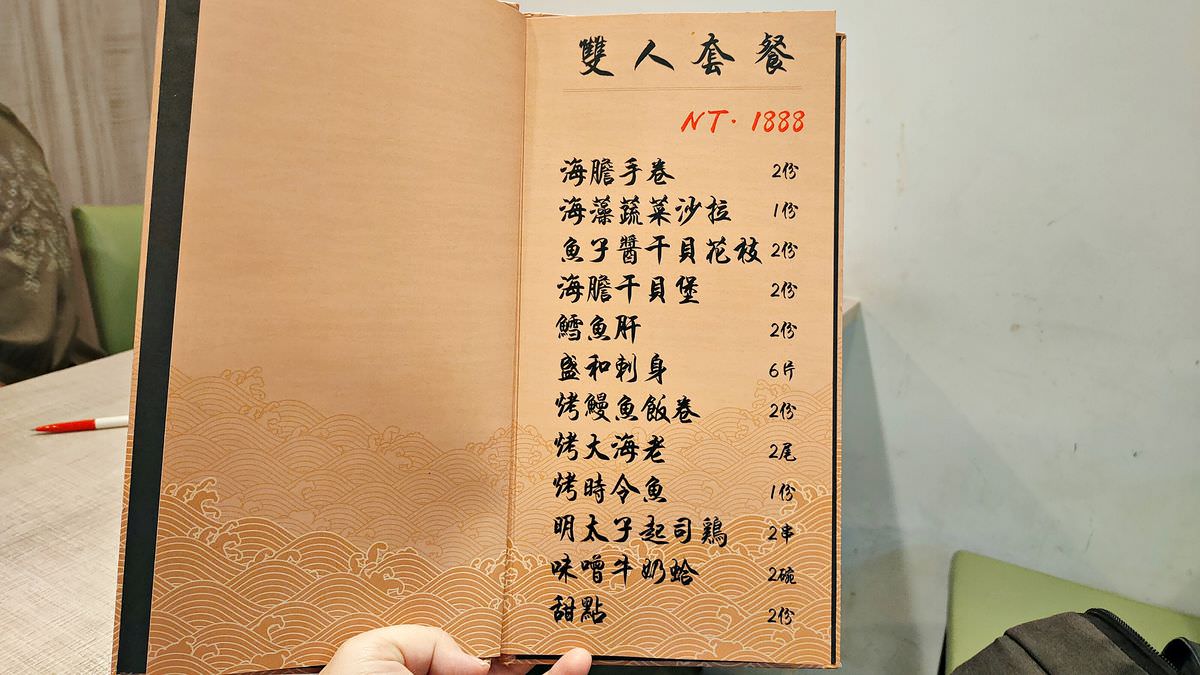 雙人套餐
NT. 1888
海膽手卷 2份
海藻蔬菜沙拉 1份
魚子醬干貝花枝 2份
海膽干貝堡 2份
鱈魚肝 2份
盛和刺身 6片
烤鰻魚飯卷 2份
烤大海老 2尾
烤時令魚 1份
明太子起司鶏 2串
味噌牛奶蛤 2碗
甜點 2份